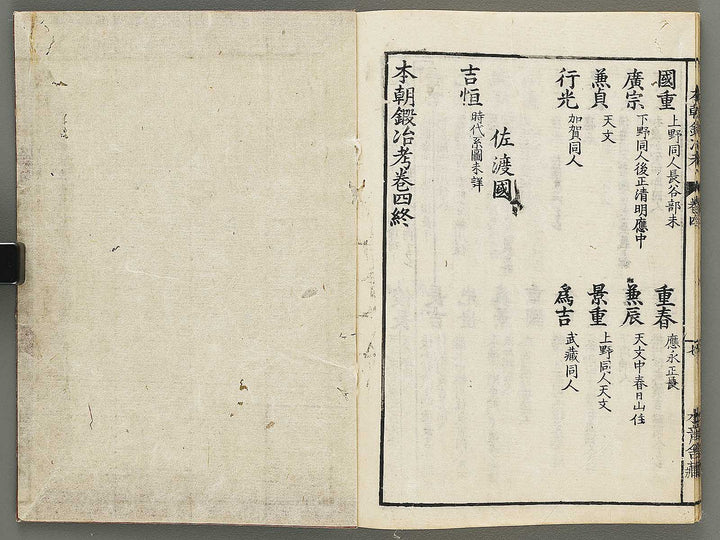 本朝鍛冶考 卷四
國重 上野同人長谷部末
重春 應永正長
廣宗 下野同人後正清明應中
兼辰 天文中春日山住
兼貞 天文
景重 上野同人天文
行光 加賀同人
爲吉 武藏同人
佐渡國
吉恒 時代系圖未詳
本朝鍛冶考卷四終